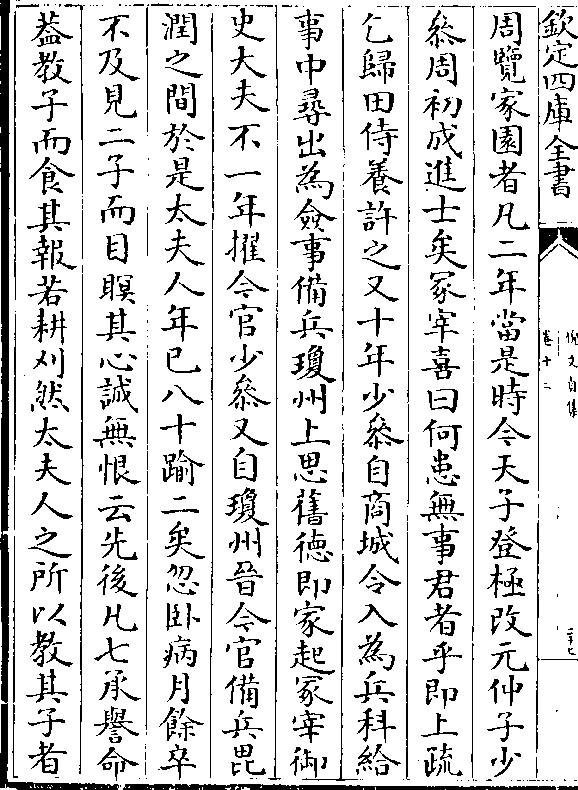 欽定四庫全書
倪文貞集
卷十二
周覽家園者凡二年當是時今天子登極改元仲子少
叅周初成進士矣冢宰喜曰何患無事君者乎即上疏
乞歸田侍養許之又十年少叅自商城令入為兵科給
事中尋出為僉事備兵瓊州上思舊德即家起冢宰御
史大夫不一年擢今官少叅又自瓊州晉今官備兵毘
潤之間於是太夫人年已八十踰二矣忽卧病月餘卒
不及見二子而目瞑其心誠無恨云先後凡七承譽命
葢教子而食其報若耕刈然太夫人之所以教其子者